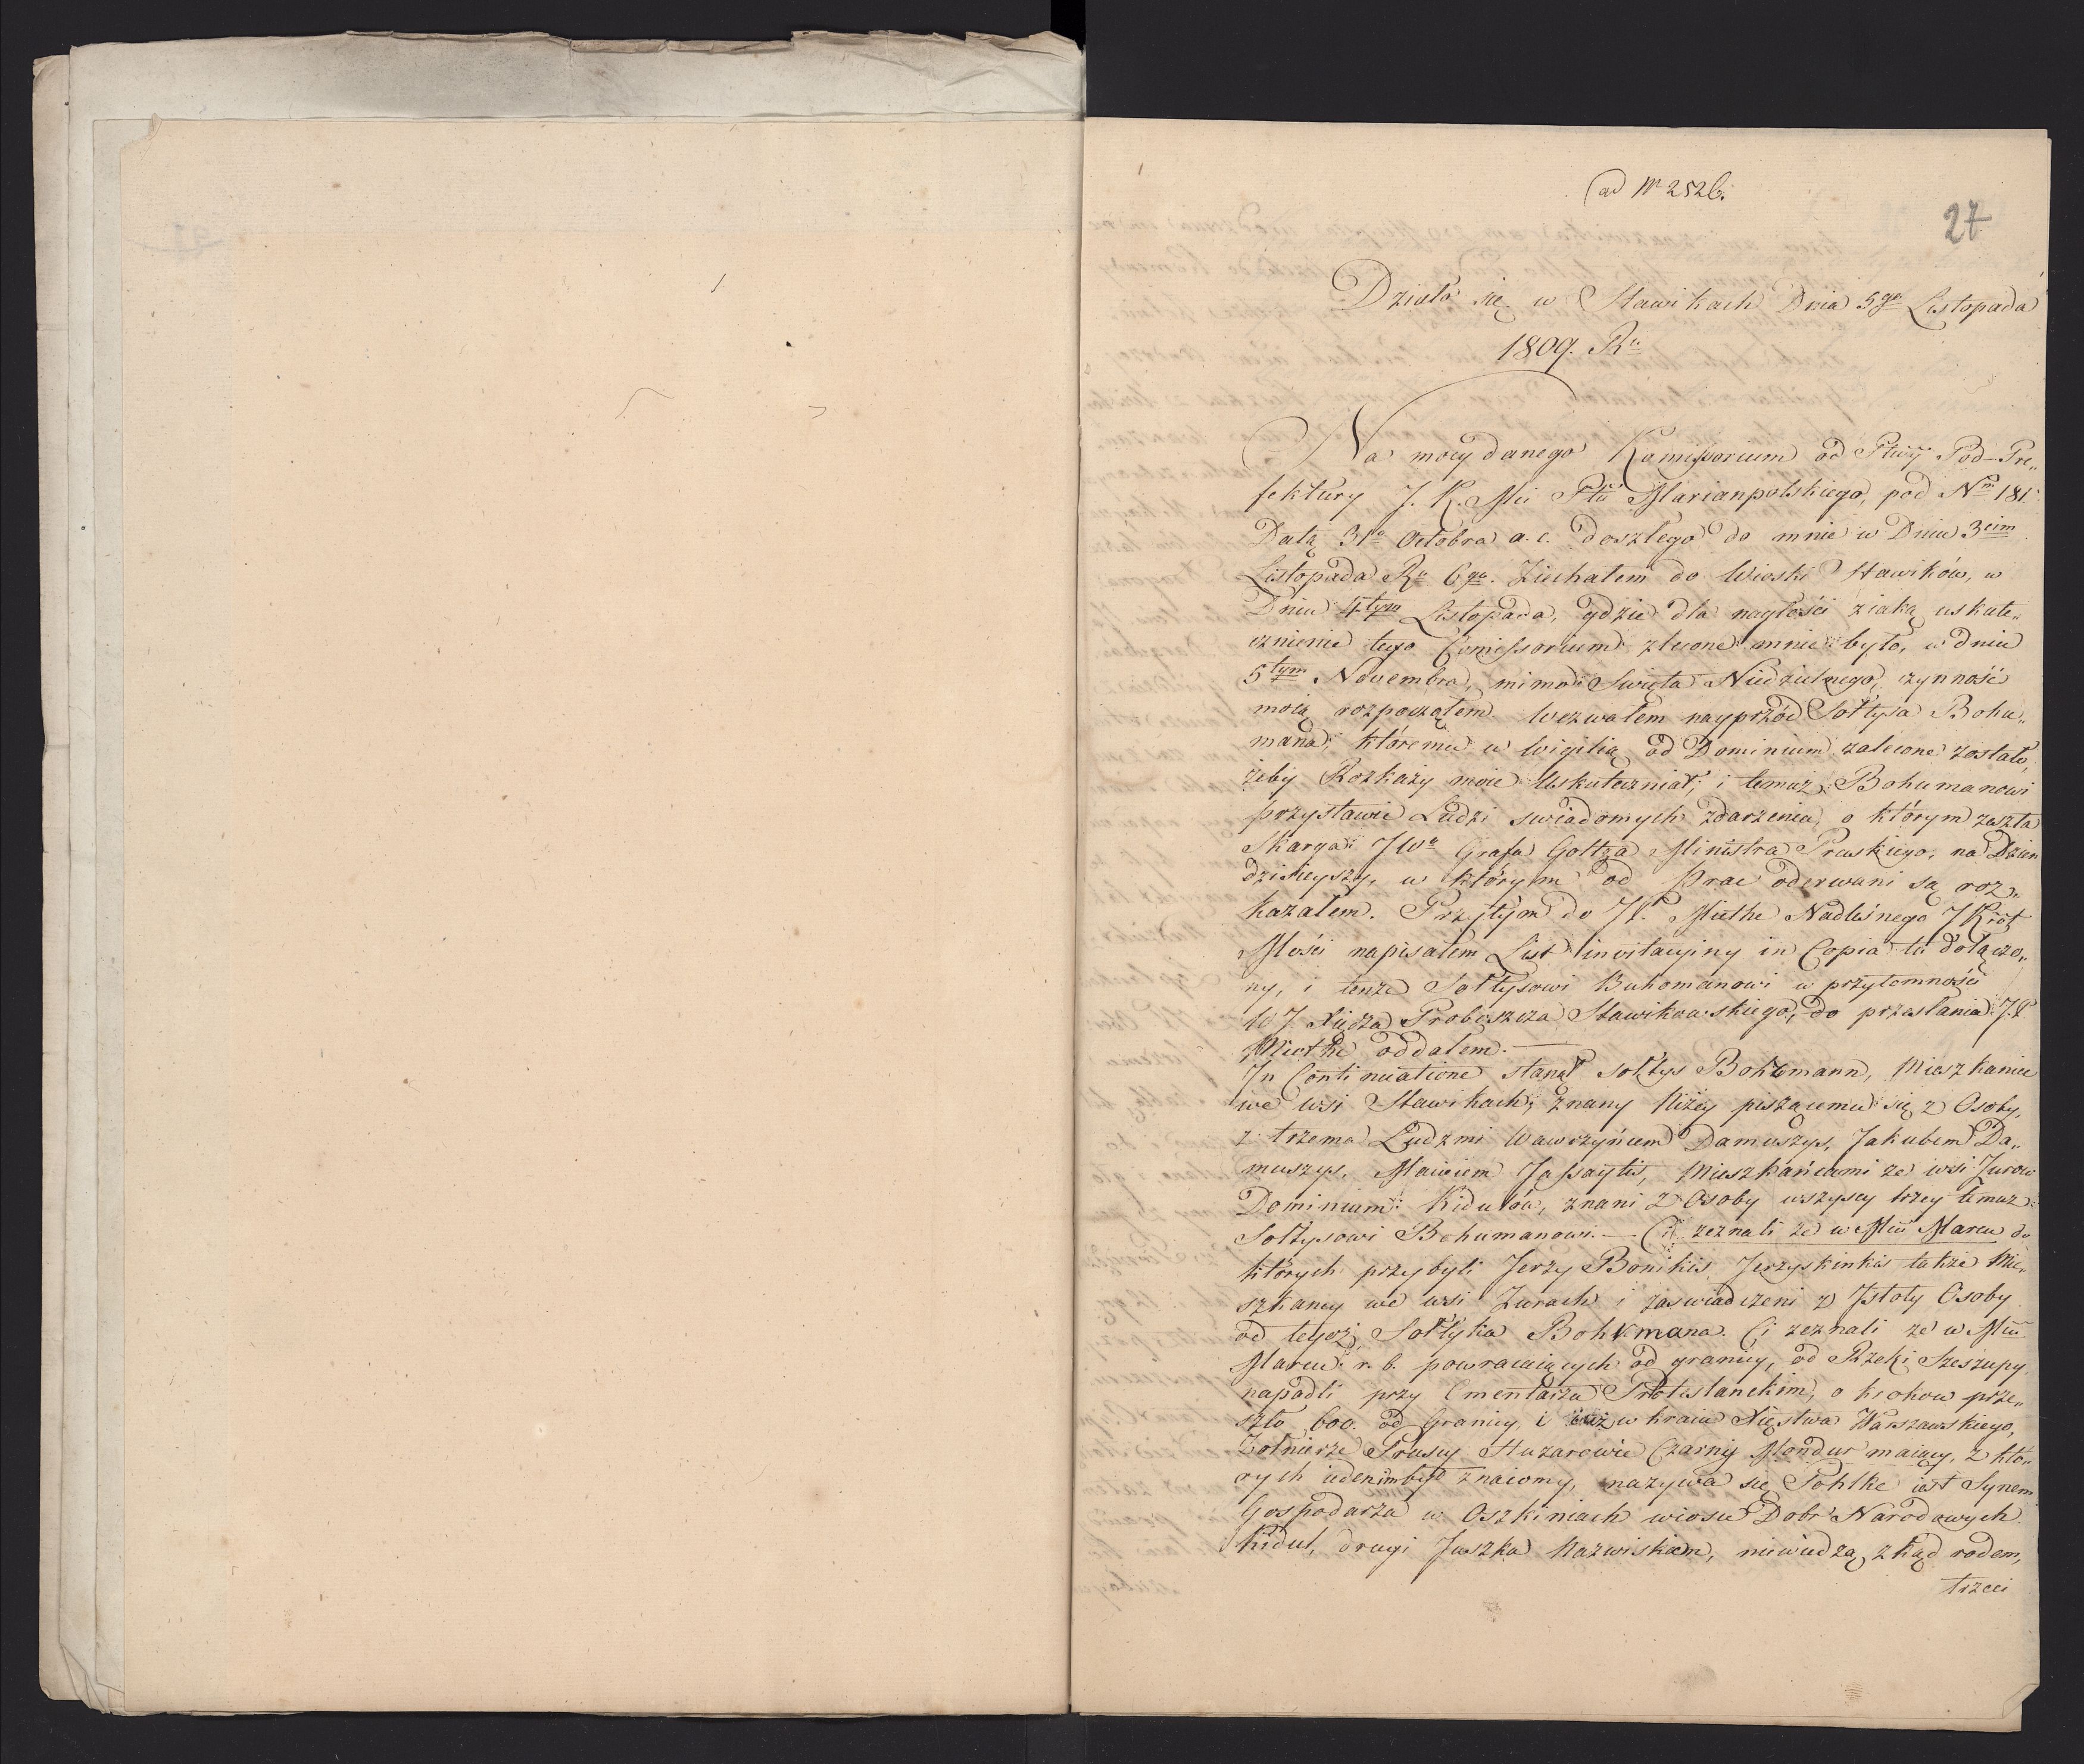 ad Nr 2526.
27
Działo się w Sławikach Dnia 5go Listopada
1809. Ru
Na mocy danego Komissorium od Pod-Pre„
fektury J. K. Mci Ptu Marianpolskiego, pod Nrm 181.
Datą 31a Octobra a. c. doszłego do mnie w Dniu 3cim
Listopada Ru bgo. Ziechałem do Wioski Sławików, w
Dniu 4tym Listopada, gdzie dla nagłości z iaką uskute„
cznienie tego Comissorium zlecone mnie było, w dniu
5tym Novembra, mimo Swięta Niedzielnego, czynność
moią rozpocząłem. Wezwałem nayprzód Sołtysa Bohu„
mana, któremu w Wigilią od Dominium zalecone zostało,
żeby Rozkazy moie Uskuteczniał; i temuż Bohumanowi
przystawić Ludzi swiadomych zdarzenia, o którym zaszła
Skarga JWo Grafa Goltza Ministra Pruskiego, na Dzien
dzisieyszy, w którym od Prac oderwani są roz„
kazałem. Przytym do JP. Miethe Nadleśnego JKról
Mości napisałem List invitacyiny in Copia tu dołączo„
ny, i tenże Sołtysowi Buhomanowi w przytomności
WJ Xiędza Proboszcza Sławikowskiego, do przesłania J.P.
Miethe oddałem. —
In Continuatione stanął Sołtys Bohumann, Mieszkaniec
we wsi Sławikach, znany Niżey piszącemu się z Osoby,
z trzema Ludzmi Wawrzyńcem Damuszys, Jakubem Da„
muszys, Macieiem Jassaytis, Mieszkańcami ze wsi Zurow
Dominium Kidulów, znani z Osoby wszyscy trzey temuż
Sołtysowi Bohumanowi. — Ci zeznali że w Mcu Marcu do
których przybyli Jerzy Bonikis, Jerzyskinkis także Mie„
szkancy we wsi Zurach i zaswiadczeni z Istoty Osoby
od tegoż Sołtyka Bohumana. Ci zeznali że w Mcu
Marcu r. b. powracaiących od granicy, od Rzeki Szeszupy
napadli przy Cmentarzu Protestanckim, o krokow prze„
szło 600. od Granicy, i iuż w kraiu Xięstwa Warszawskiego,
Żołnierze Pruscy Huzarowie Czarny Mondur maiący, z któ„
rych ieden im był znaiomy, nazywa się Pohlke iest Synem
Gospodarza w Oszkiniach wiosce Dobr Narodowych
Kidul, drugi Juszka Nazwiskiem, niewiedzą zkąd rodem,
trzeci